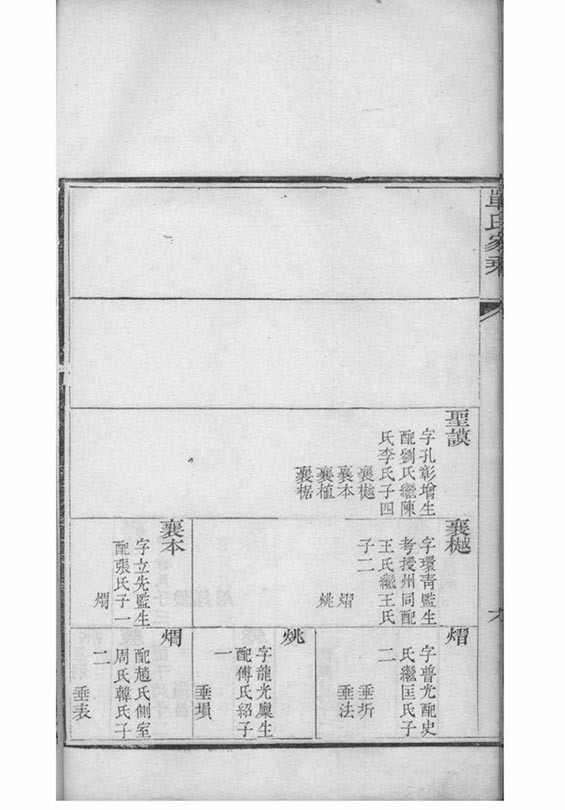 單氏家乘
聖謨
字孔彰增生
配劉氏繼陳
氏李氏子四
襄樾
襄本
襄植
襄椐
襄樾
字環青監生
考授州同配
王氏繼王氏
子二
熠
烑
襄本
字立先監生
配張氏子一
熠
字普光配史
氏繼匡氏子
二
垂圻
垂法
烑
字龍光廩生
配傅氏紹子
一
垂塤
配趙氏側室
周氏韓氏子
二
垂表